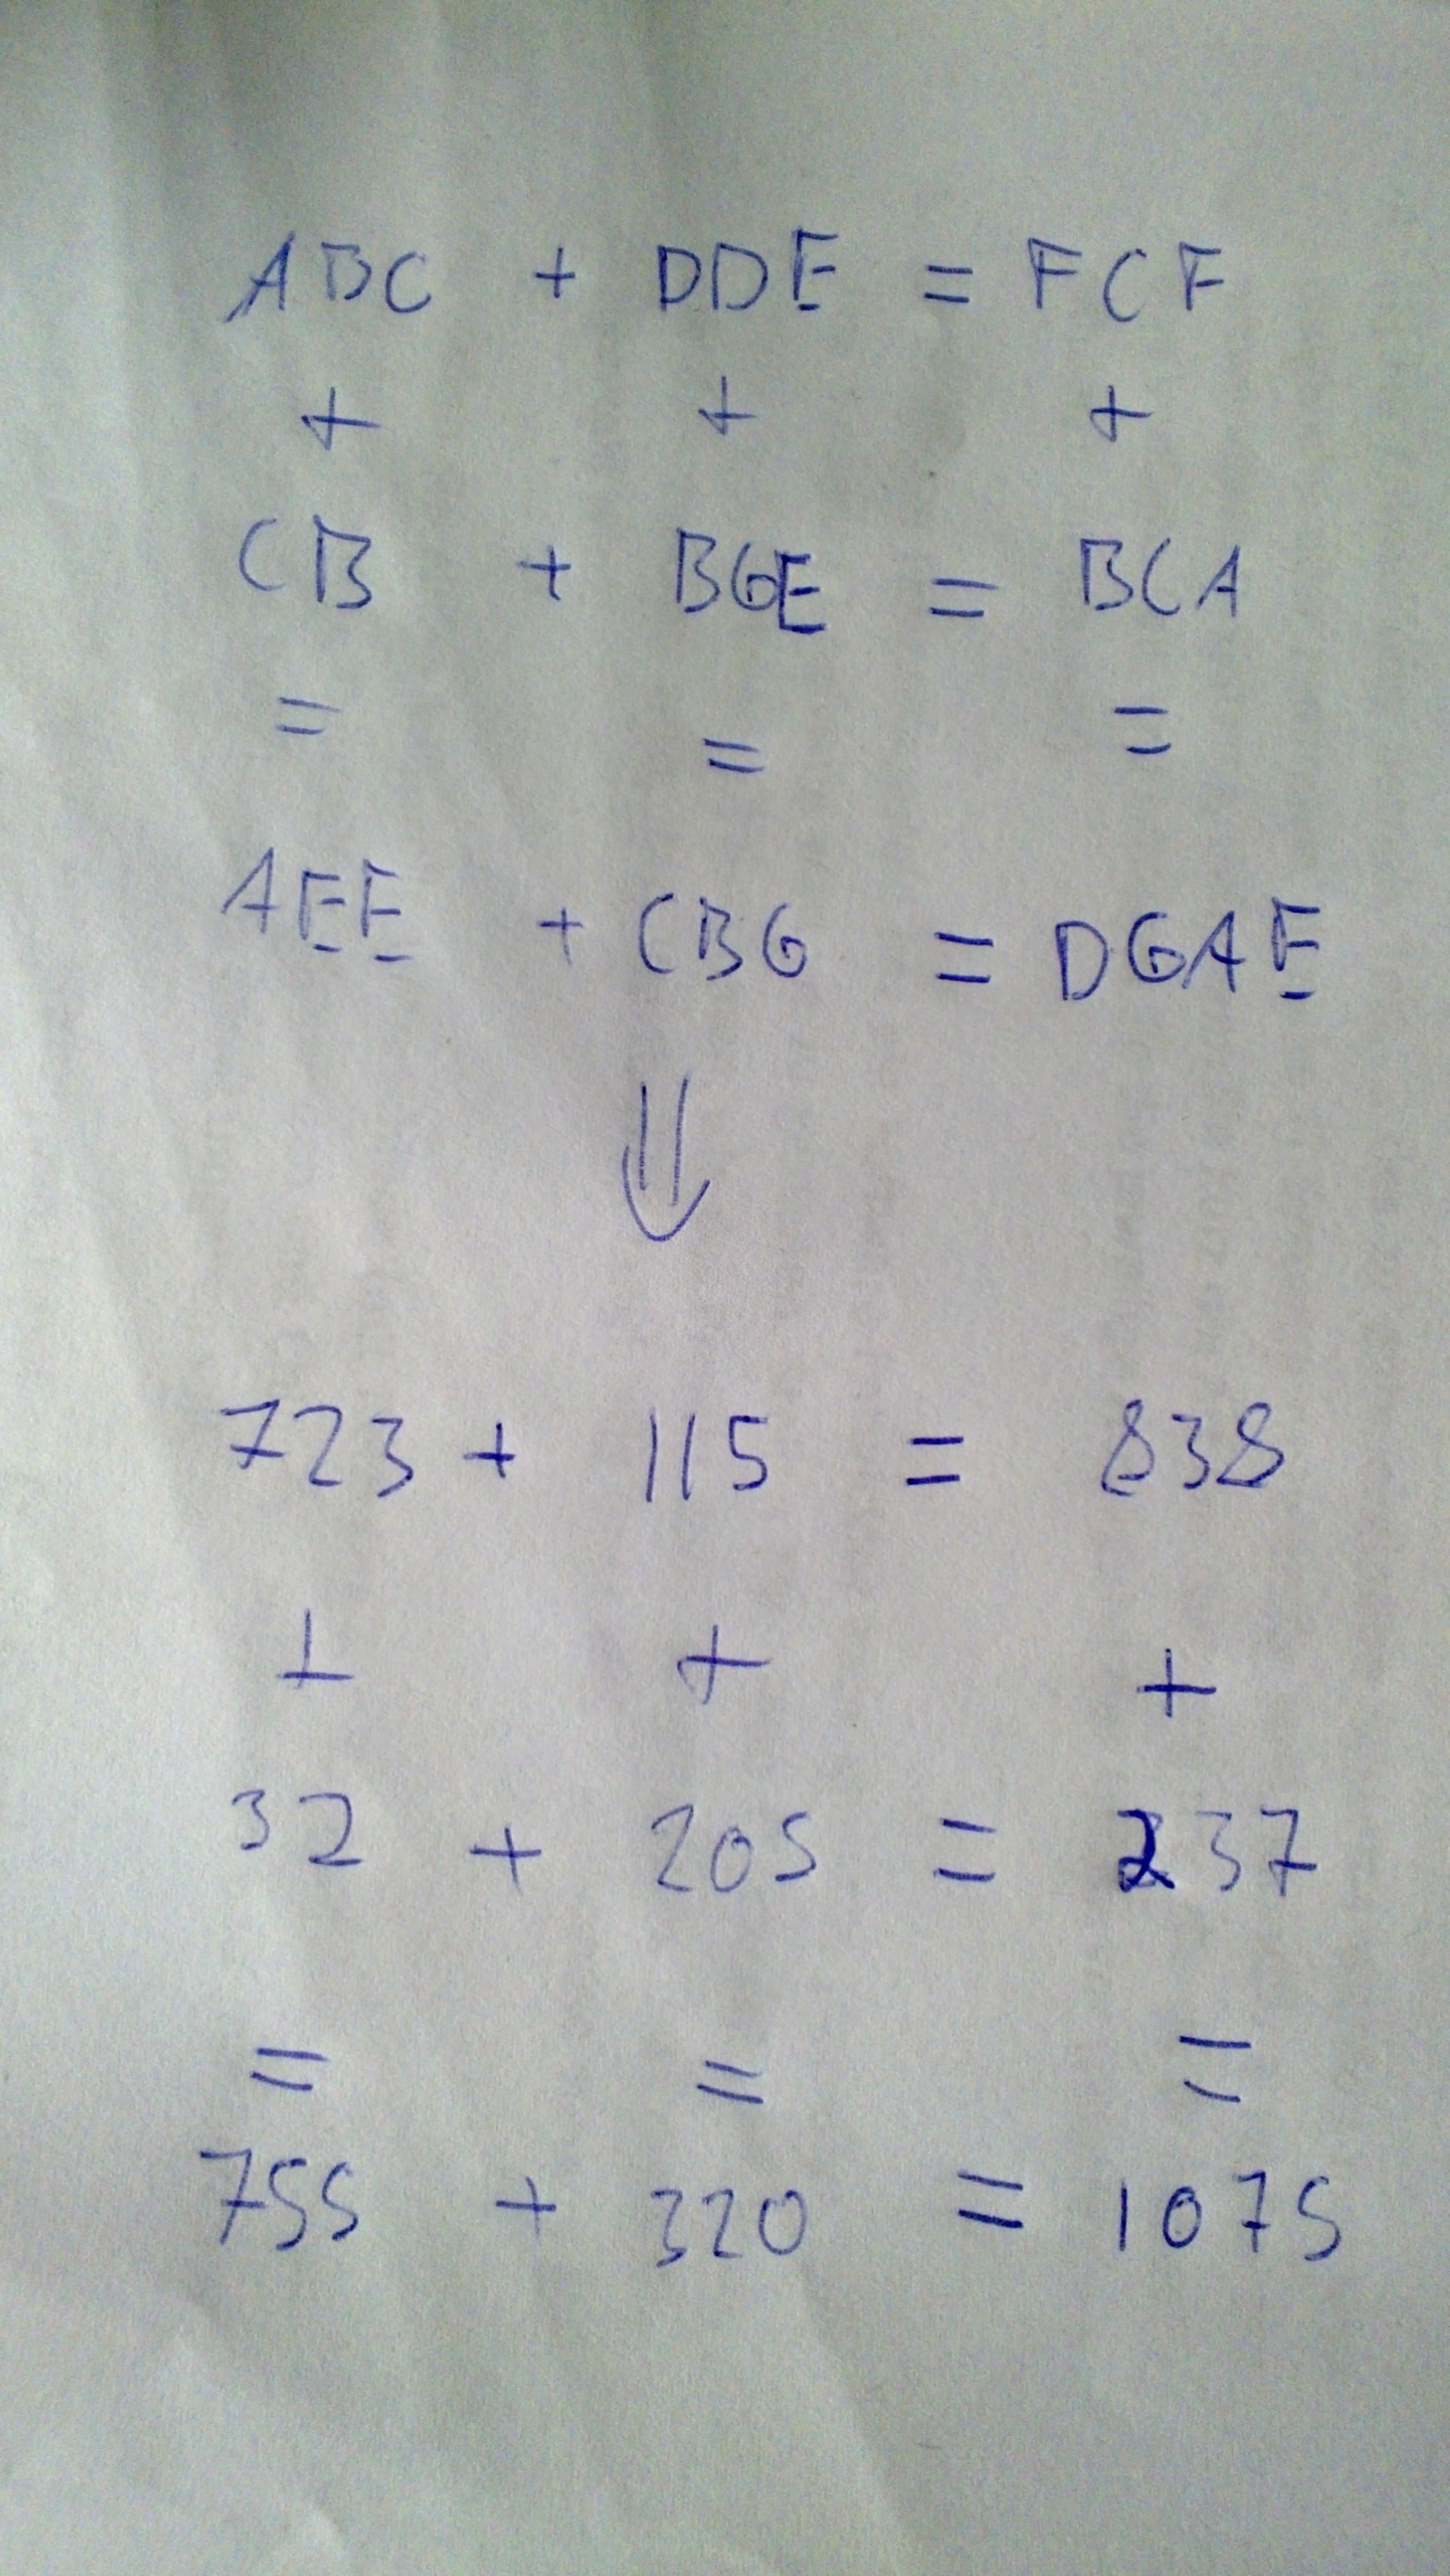 ABC + DDE = FCF
+ + +
CB + BGE = BCA
= = =
AEE + CBG = DGAE
⇓
723 + 115 = 838
+ + +
32 + 205 = 237
= = =
755 + 320 = 1075